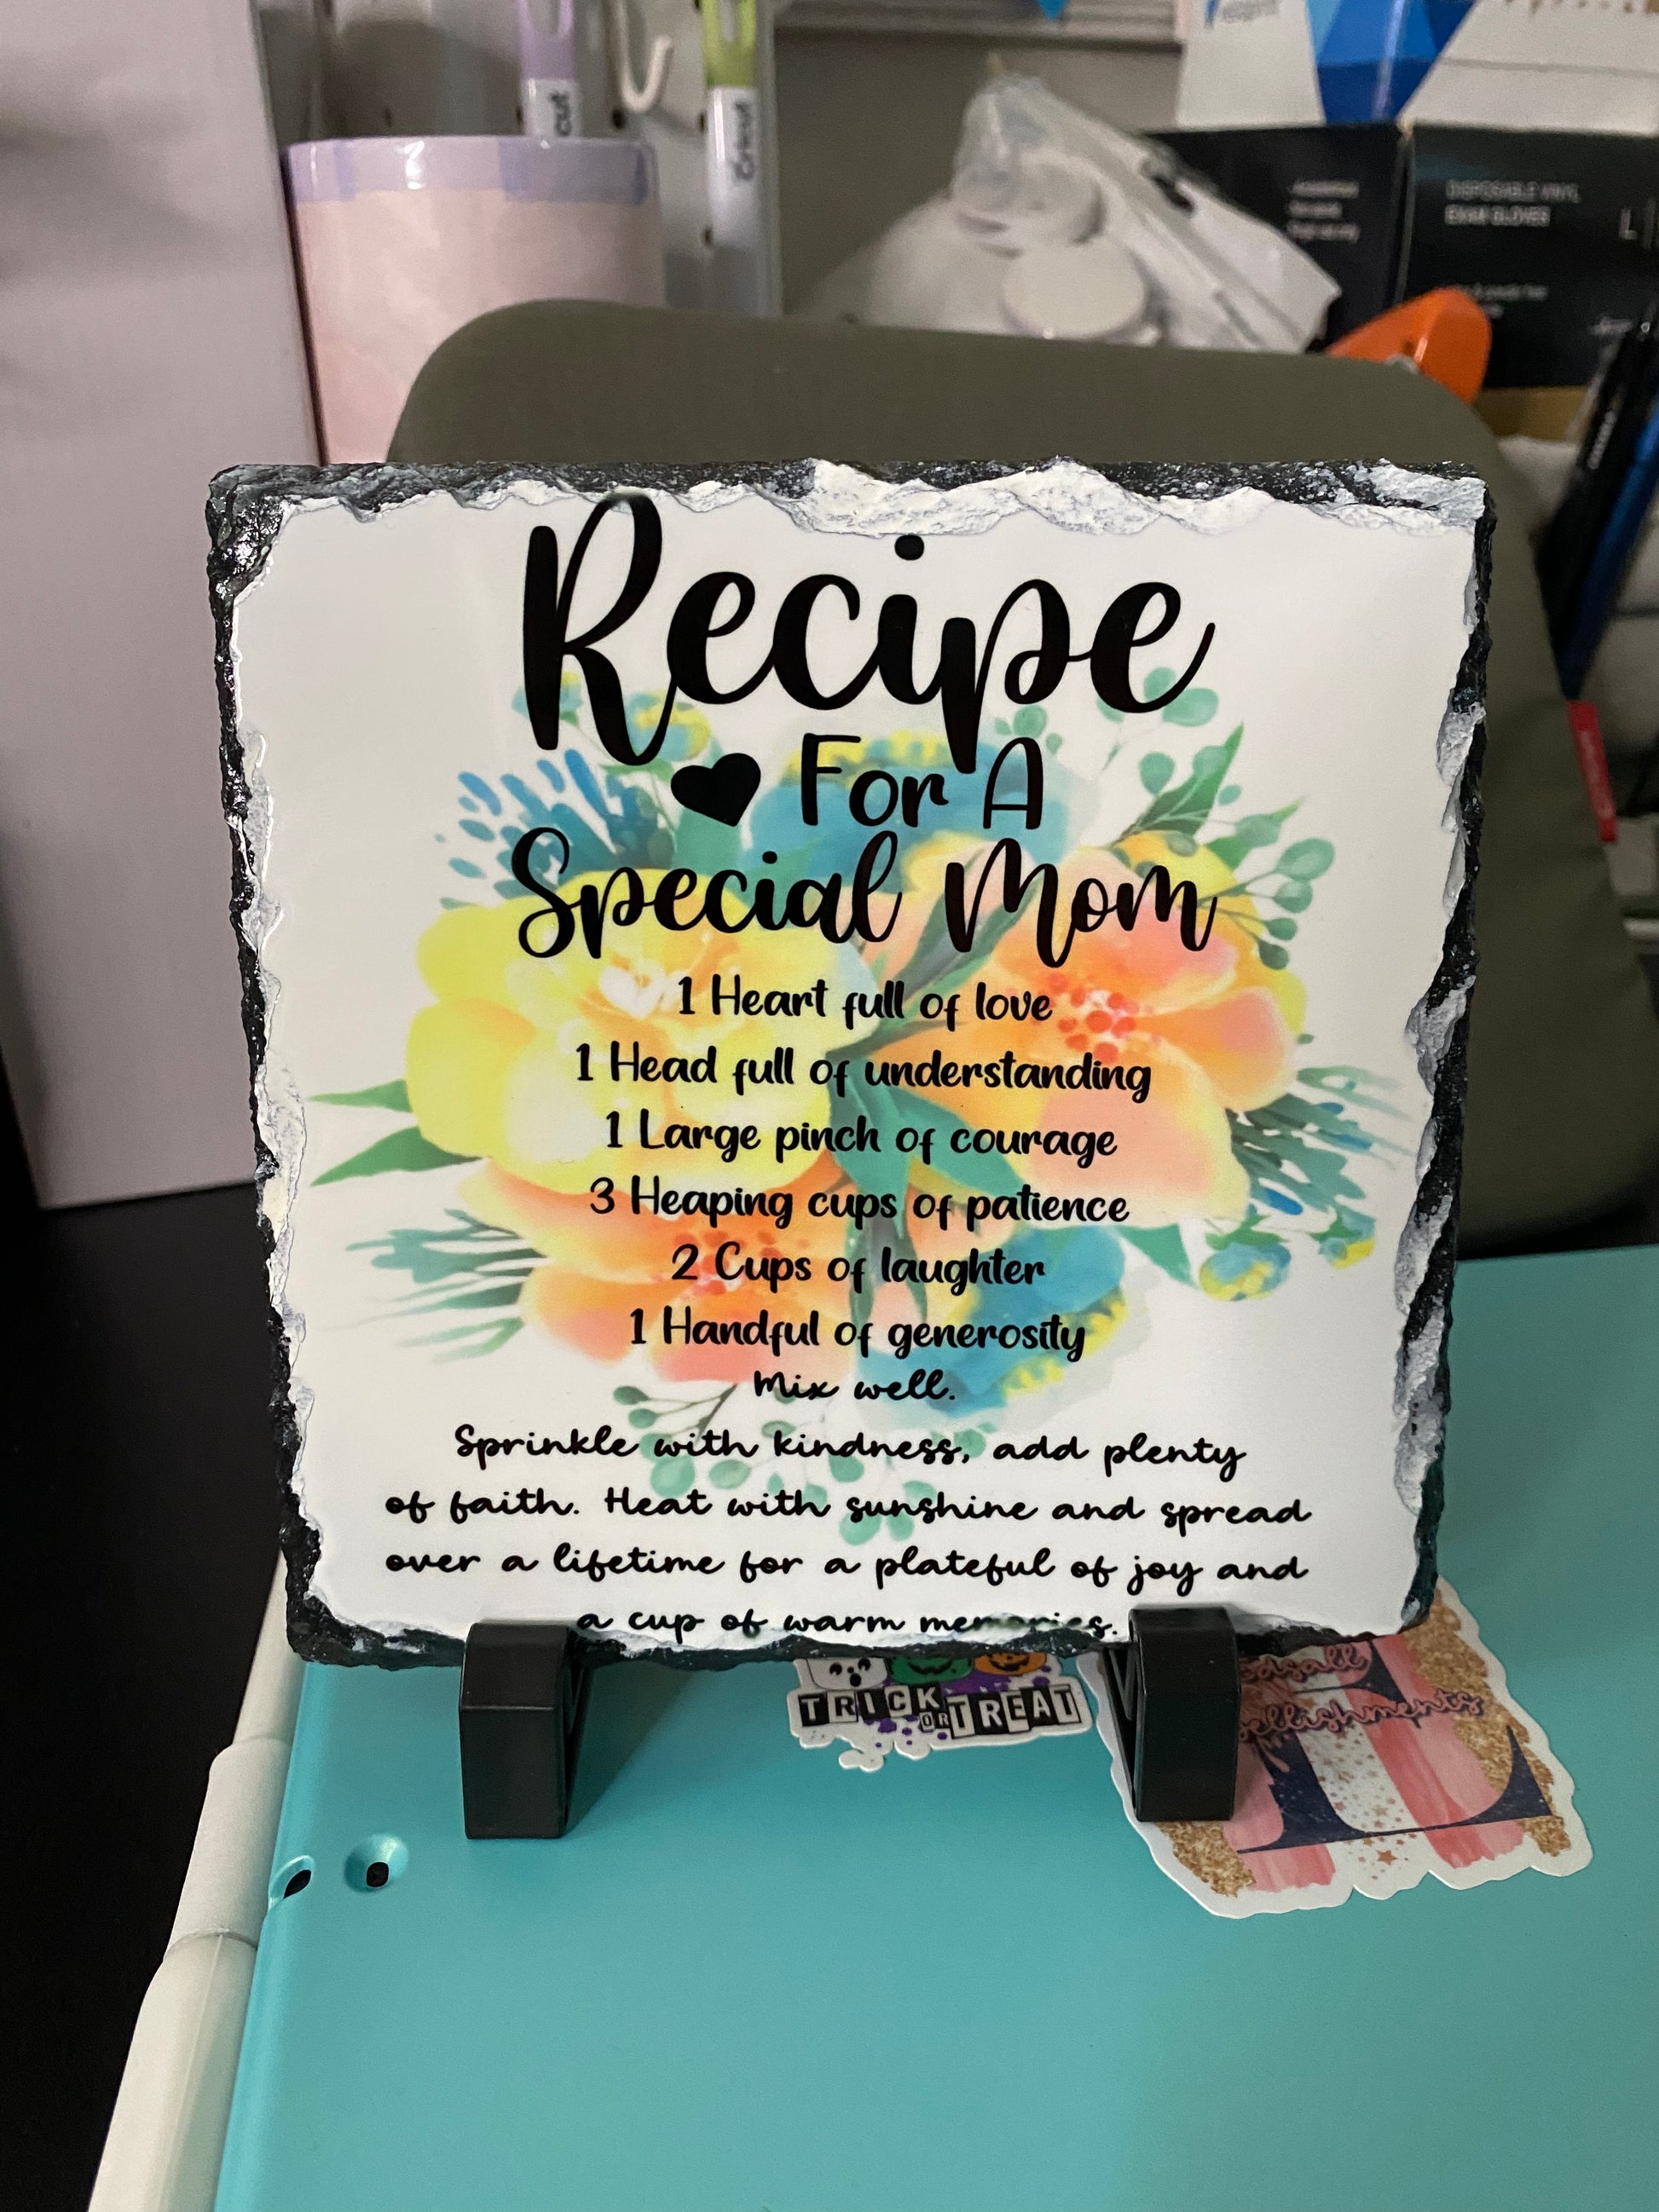 cut
Cricut
DISPOSABLE VINYL
EXAM GLOVES
L
Recipe
For A
Special Mom
1 Heart full of love
1 Head full of understanding
1 Large pinch of courage
3 Heaping cups of patience
2 Cups of laughter
1 Handful of generosity
Mix well.
Sprinkle with kindness, add plenty
of faith. Heat with sunshine and spread
over a lifetime for a plateful of joy and
a cup of warm memories.
TRICK
OR TREAT
E